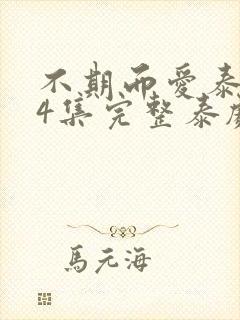 不期而愛泰
4集完整泰劇
馬元海